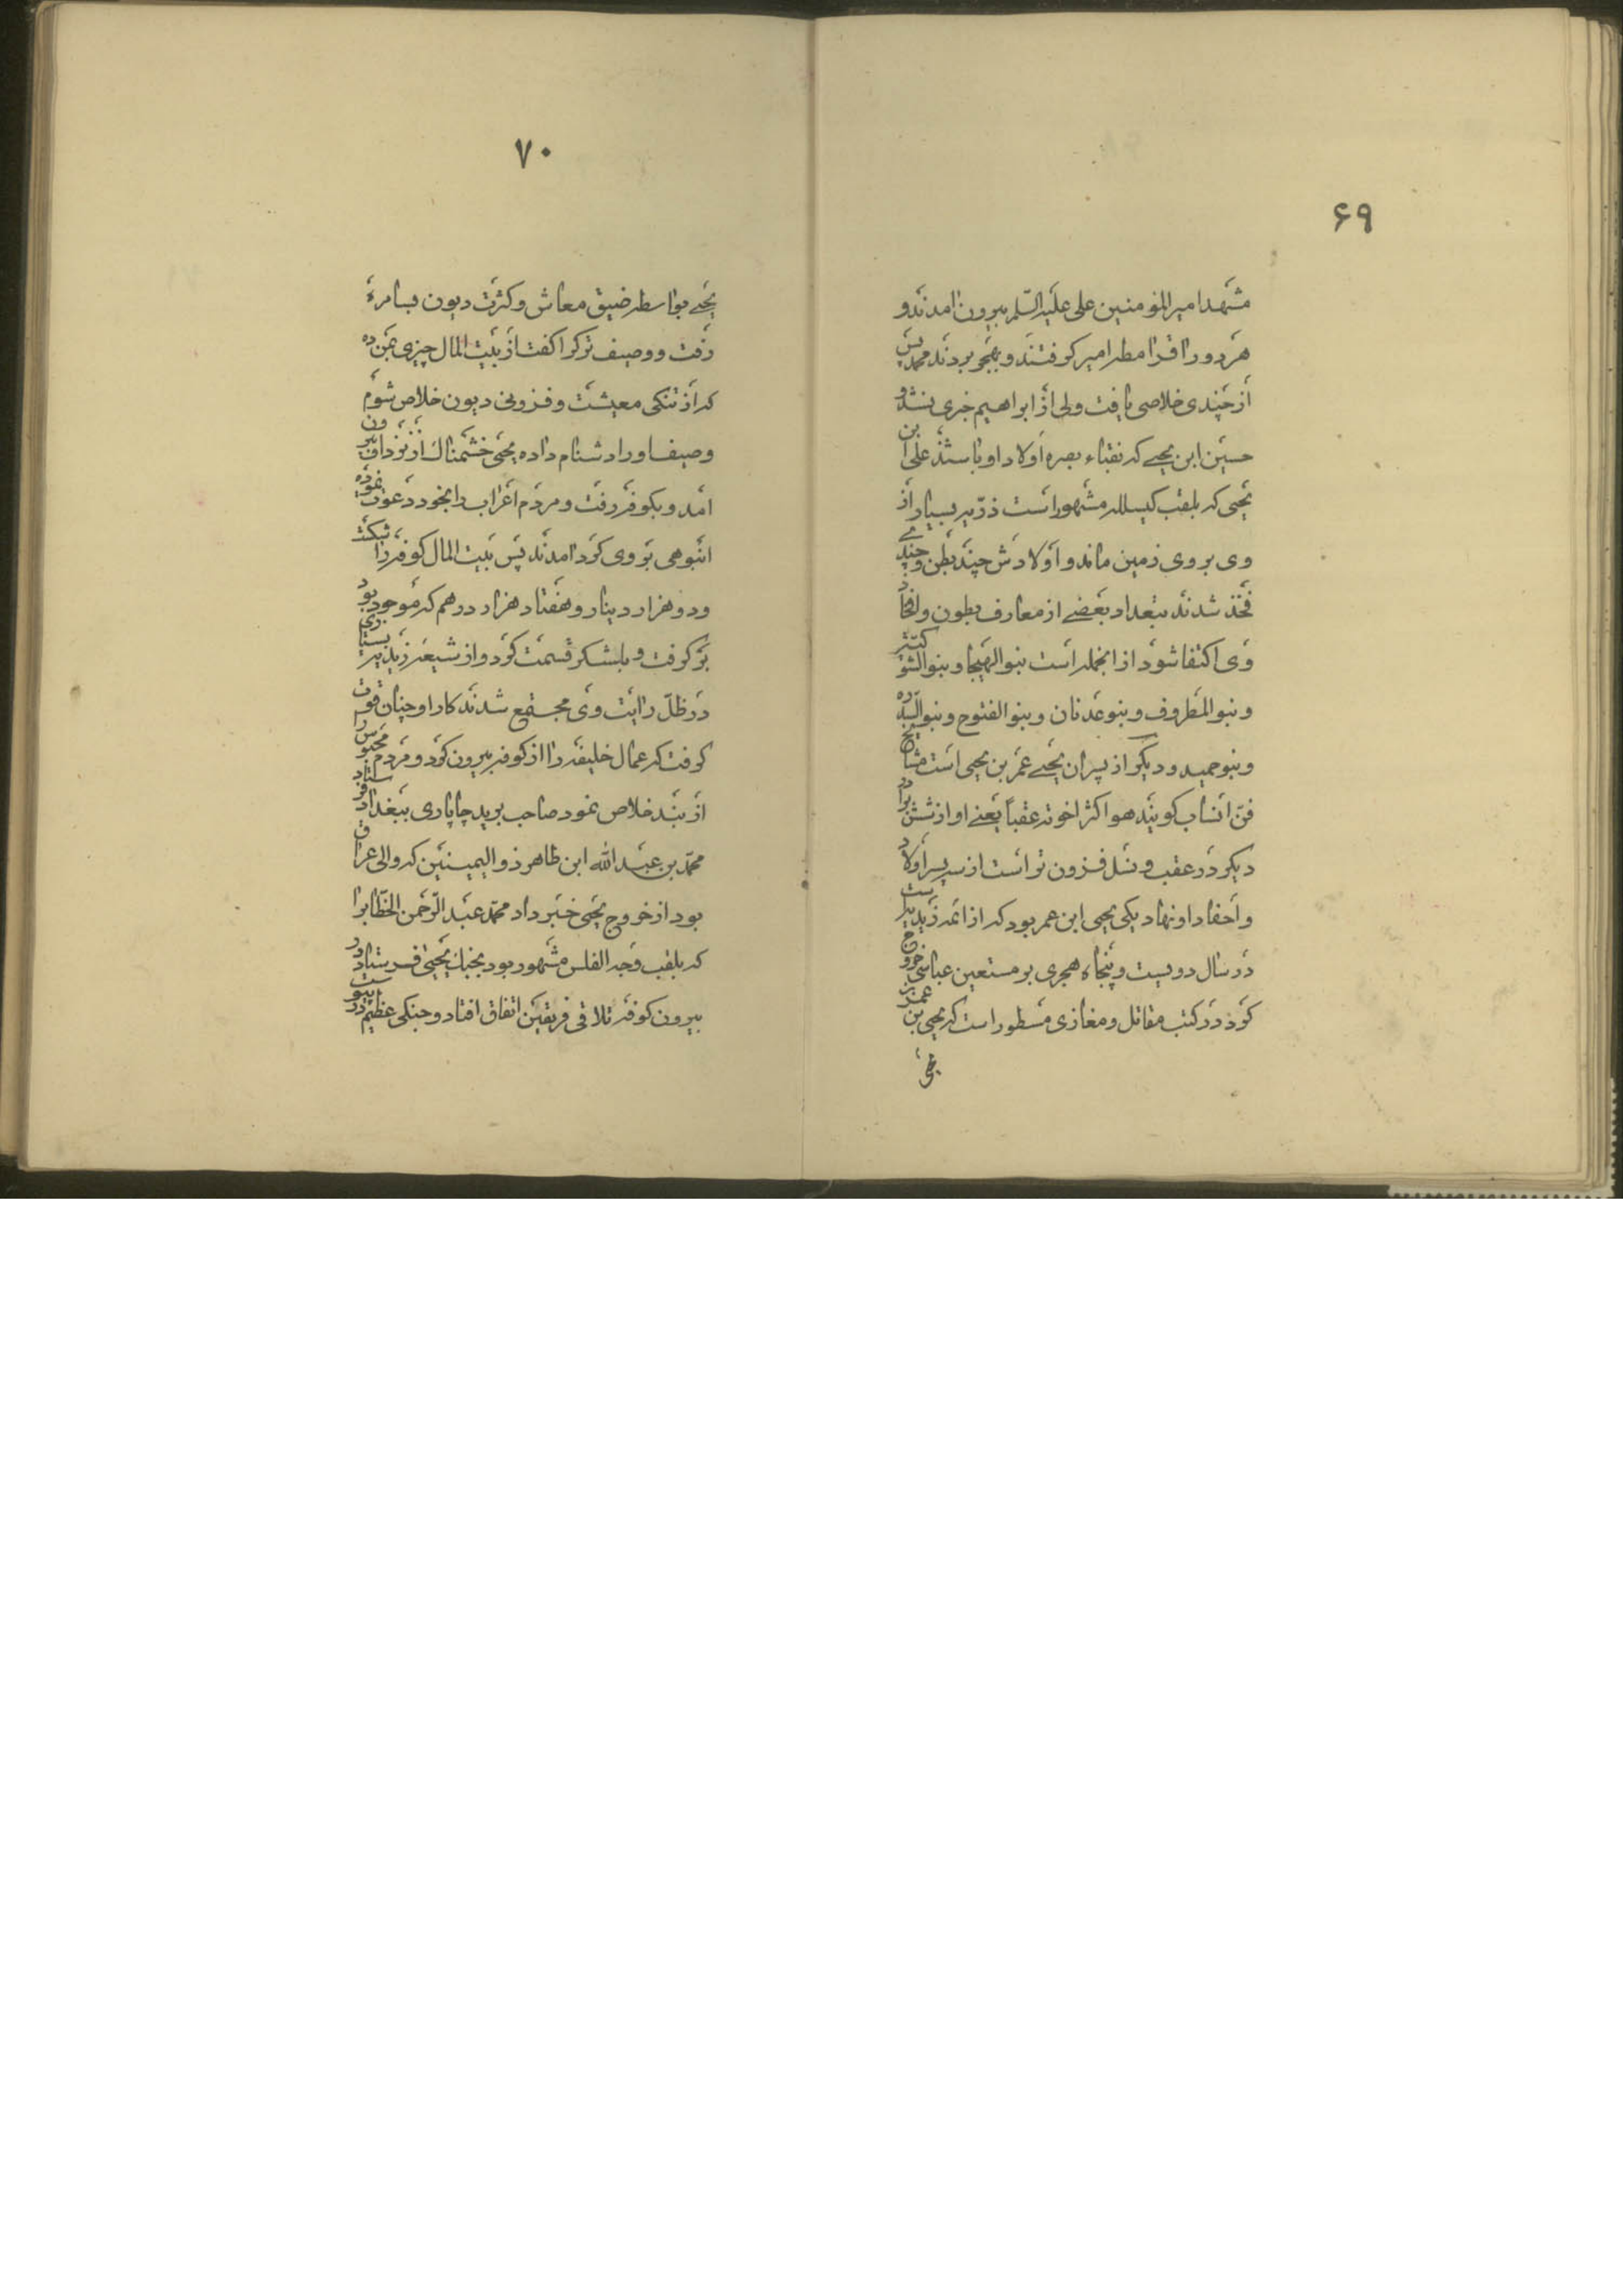 ۶۹
مشهد امیر المؤمنین علی علیه السلم بیرون امدند و
هر دو را قرامطه اسیر کرفتند و بهجر بردند محمد پس
از چندی خلاصی یافت ولی از ابراهیم خبری نشد و
حسین ابن یحیی که نقباء بصره اولاد او باشند علی بن
یحیی که بلقب کیسلله مشهور است ذریه بسیار از
وی بروی زمین ماند و اولادش چند بطن و چند
فخذ شدند بتعداد بعضے از معارف بطون و افخاذ
وی اکتفا شود از انجمله است بنو الهیجا و بنو الشوکیه
و بنو المطروف و بنو عدنان و بنو الفتوح و بنو السدره
و بنو حمید و دیکر از پسران یحیی عمر بن یحیی است مشایخ
فن انساب کویند هو اکثر اخوته عقباً یعنے او از شش برادر
دیکر در عقب و نسل فزون تر است از سه پسر اولاد
و احفاد او نهاد یکی یحیی ابن عمر بود که از ائمه زیدیه است
در سال دویست و پنجاه هجری بر مستعین عباسی خروج
کرد در کتب مقاتل و مغازی مسطور است که یحیی بن عمر
یحیی
۷۰
یحیی بواسطه ضیق معاش و کثرت دیون بسامره
رفت و وصیف ترکرا کفت از بیت المال چیزی بمن ده
که از تنکی معیشت و فزونی دیون خلاص شوم
وصیف او را دشنام داده یحیی خشمناک از نزد او بیرون
امد و بکوفه رفت و مردم اعراب را بخود دعوت نموده
انبوهی بر وی کرد امدند پس بیت المال کوفه را شکست
و دو هزار دینار و هفتاد هزار درهم که موجود بود
بر کرفت و بلشکر قسمت کرد و از شیعه زیدیه بسیاری
در ظل رایت وی مجتمع شدند کار او چنان قوت
کرفت که عمال خلیفه را از کوفه بیرون کرد و مردم محبوس را
از بند خلاص نمود صاحب برید چاپاری ببغداد فرستاد
محمد بن عبد الله ابن طاهر ذو الیمینین که والی عراق
بود از خروج یحیی خبر داد محمد عبد الرحمن الخطابرا
که بلقب وجه الفلس مشهور بود بجنک یحیی فرستاد در
بیرون کوفه تلاقی فریقین اتفاق افتاد و جنکی عظیم در پیوست